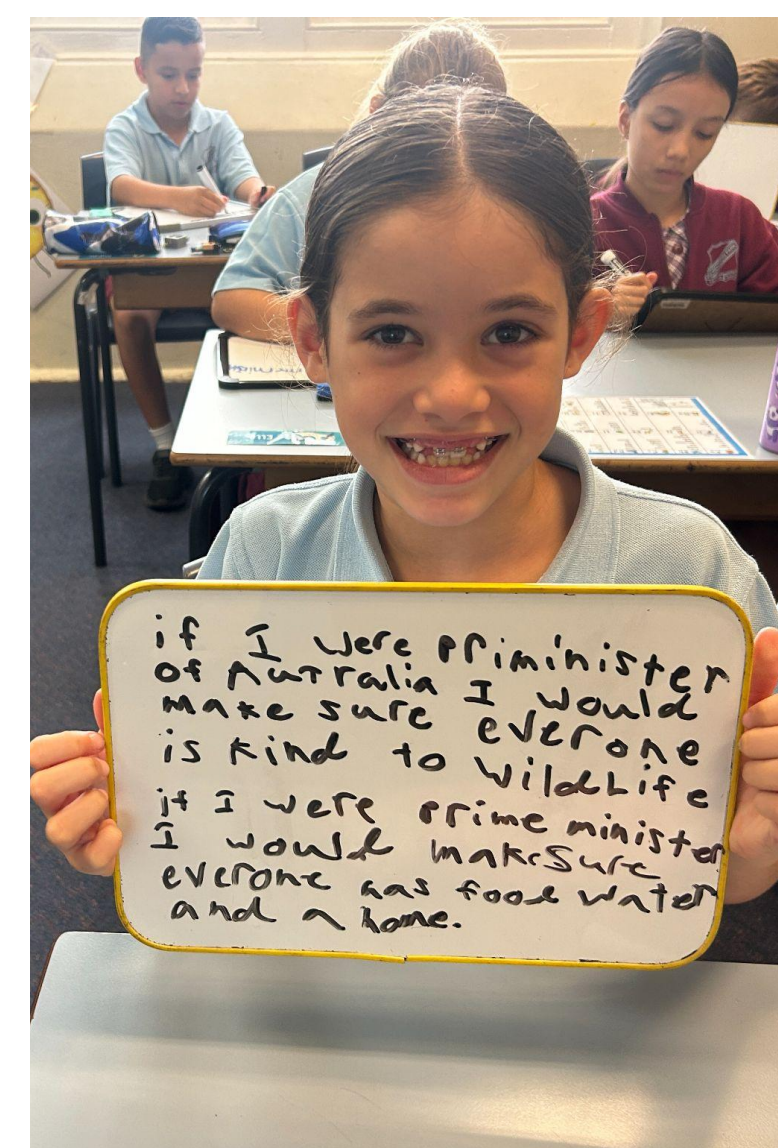 if I were priminister
of Autralia I would
make sure everone
is kind to wildLife
if I were prime minister
I would make sure
everone has food water
and a home.